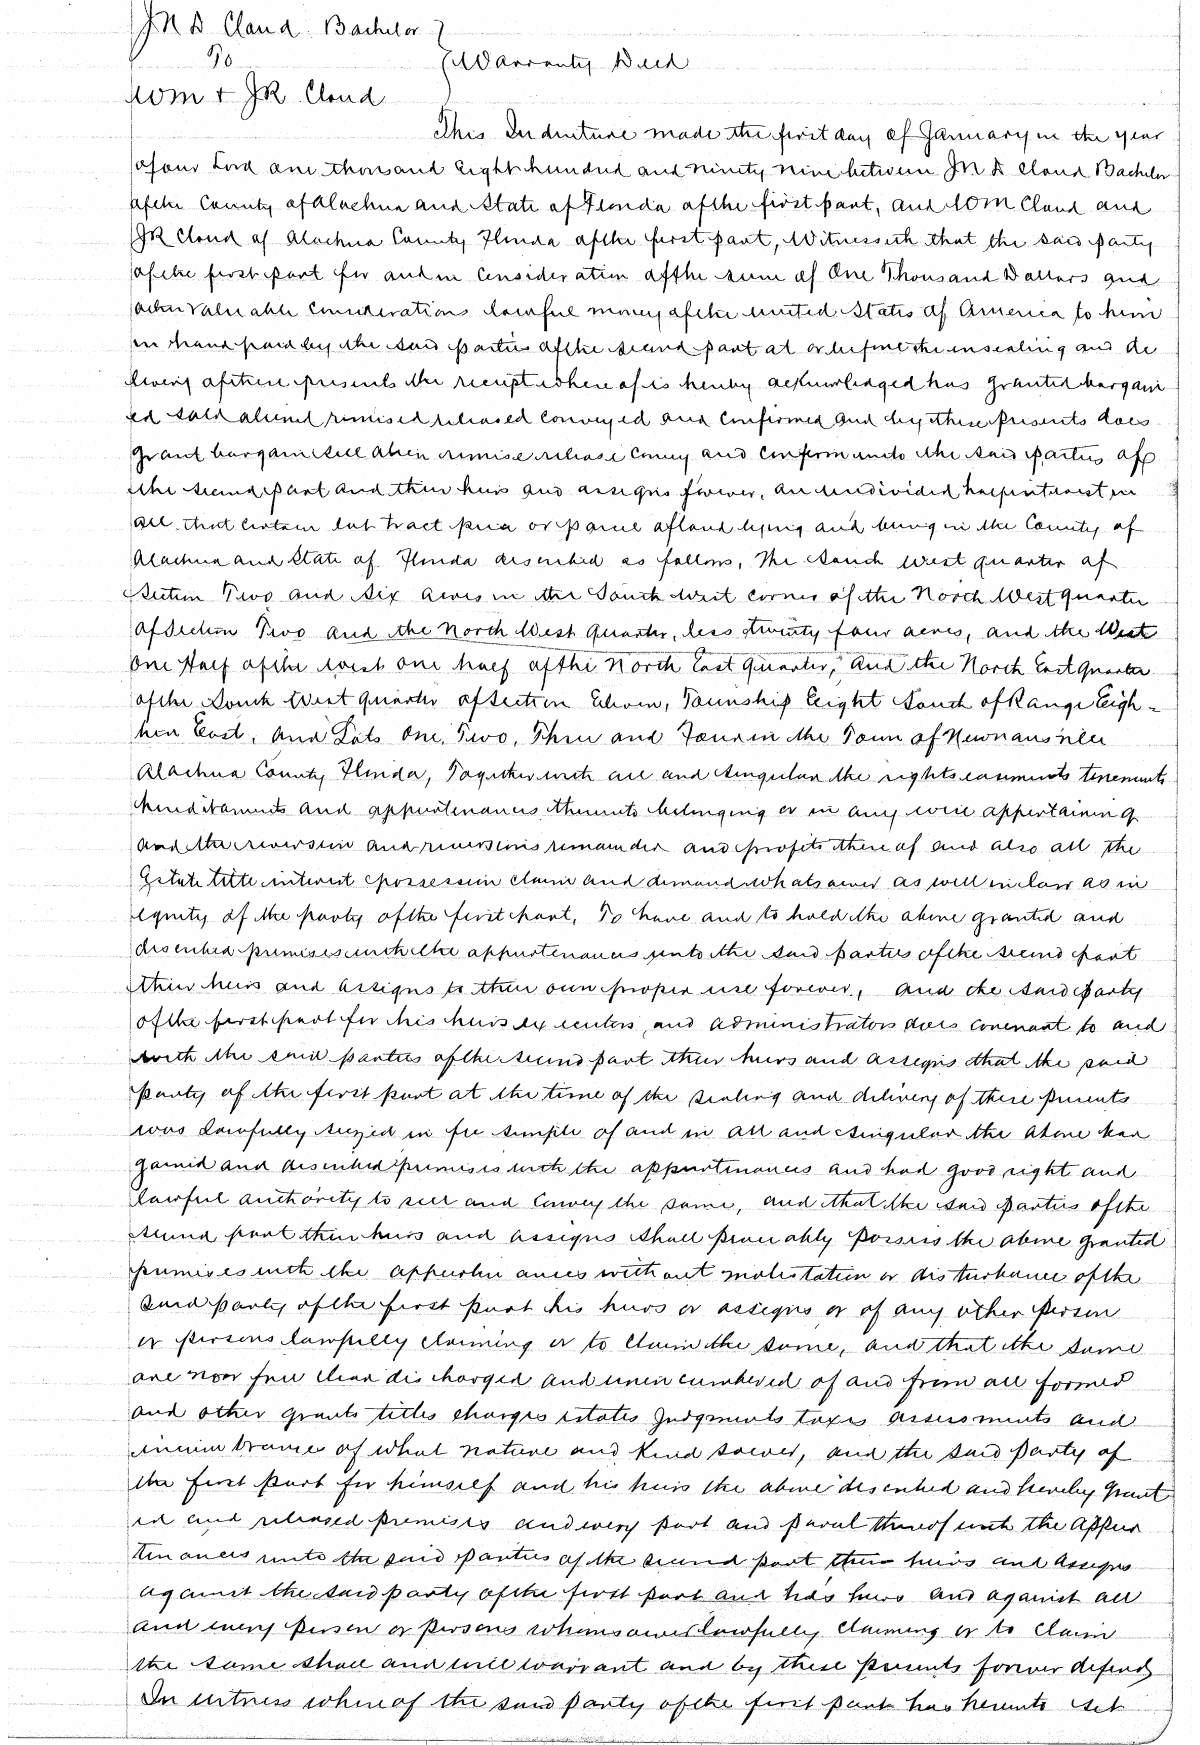 J N D Cloud Bachelor
To
Warranty Deed
W M + J R Cloud
This Indenture made the first day of January in the year
of our Lord one thousand Eight hundred and ninety nine between J N D Cloud Bachelor
of the County of Alachua and State of Florida of the first part, and W M Cloud and
J R Cloud of Alachua County Florida of the first part, Witnesseth that the said party
of the first part for and in Consideration of the sum of One Thousand Dollars and
other valuable Considerations lawful money of the united States of America to him
in hand paid by the said parties of the second part at or before the ensealing and de
livery of these presents the receipt where of is hereby acknowledged has granted bargain
ed sold aliened remised released Conveyed and Confirmed and by these presents does
grant bargain sell alien remise release Convey and Confirm unto the said parties of
the second part and their heirs and assigns forever, an undivided half interest in
all that certain lot tract piece or parcel of land lying and being in the County of
Alachua and State of Florida described as follows, The South West quarter of
Section Two and Six acres in the South West corner of the North West quarter
of Section Two and the North West Quarter, less twenty four acres, and the West
One Half of the west one half of the North East Quarter, and the North East Quarter
of the South West quarter of Section Eleven, Township Eight South of Range Eigh-
teen East, And Lots One, Two, Three and Four in the Town of Newnansville
Alachua County Florida, Together with all and singular the rights easements tenements
hereditaments and appurtenances thereunto belonging or in any wise appertaining
and the reversion and reversions remainder and profits there of and also all the
Estate title interest possession claim and demand whatsoever as well in law as in
equity of the party of the first part, To have and to hold the above granted and
described premises with the appurtenances unto the said parties of the second part
their heirs and assigns to their own proper use forever, And the said party
of the first part for his heirs executors and administrators does covenant to and
with the said parties of the second part their heirs and assigns that the said
party of the first part at the time of the sealing and delivery of these presents
was lawfully seized in fee simple of and in all and singular the above bar
gained and described premises with the appurtenances and had good right and
lawful authority to sell and Convey the same, and that the said parties of the
second part their heirs and assigns shall peaceably possess the above granted
premises with the appurtenances without molestation or disturbance of the
said party of the first part his heirs or assigns or of any other person
or persons lawfully claiming or to claim the same, and that the same
are now free clear discharged and unencumbered of and from all former
and other grants titles charges estates Judgments taxes assessments and
incumbrance of what nature and kind soever, and the said party of
the first part for himself and his heirs the above described and hereby grant
ed and released premises and every part and parcel thereof with the appur
tenances unto the said parties of the second part their heirs and assigns
against the said party of the first part and his heirs and against all
and every person or persons whomsoever lawfully claiming or to claim
the same shall and will warrant and by these presents forever defend
In witness where of the said party of the first part has hereunto set